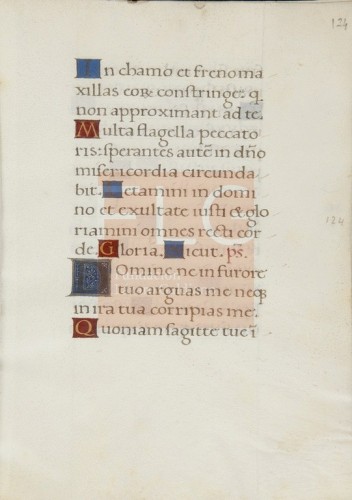 124
In chamo et freno ma
xillas eoꝝ constringe: q.
non approximant ad te.
Multa flagella peccato
ris: sperantes autẽ in dño
misericordia circunda
bit. Letamini in domi
no et exultate iusti & glo
riamini omnes recti cor
de. Gloria. Sicut. ps.
Domine ne in furore
tuo arguas me neqꝫ
in ira tua corripias me.
Quoniam sagitte tue ĩ
124